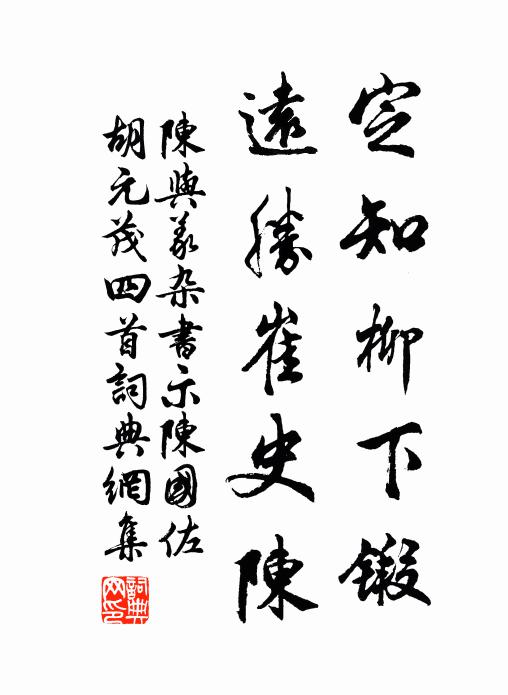 定知柳下鍛
遠勝崔史陳
陳與義杂書示陳國佐
胡元茂四首詞典網集
詞典網印